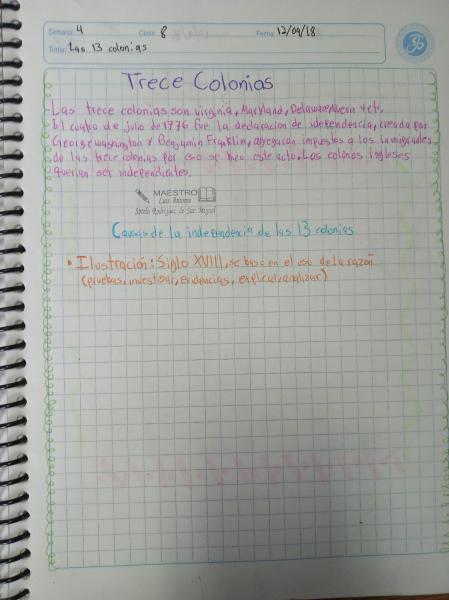 Semana: 4 Clase: 8 Fecha: 12/09/18
Tema: Las 13 colonias
Trece Colonias
Las trece colonias son virginia, Maryland, Delaware
El cuatro de julio de 1776 fue la declaracion de idependencia, creada por
George washington y Benjamin Franklin, agregaron impuestos a los inmigrades
de las trece colonias por eso se hizo este acto. Los colonos Ingleses
querian ser independientes.
MAESTRO
Luis
Rodríguez de San Miguel
Causas de la independencia de las 13 colonias
• Ilustración: Siglo XVIII, se baso en el uso de la razon
(pruebas, investigar, evidencias, explicar, analizar)